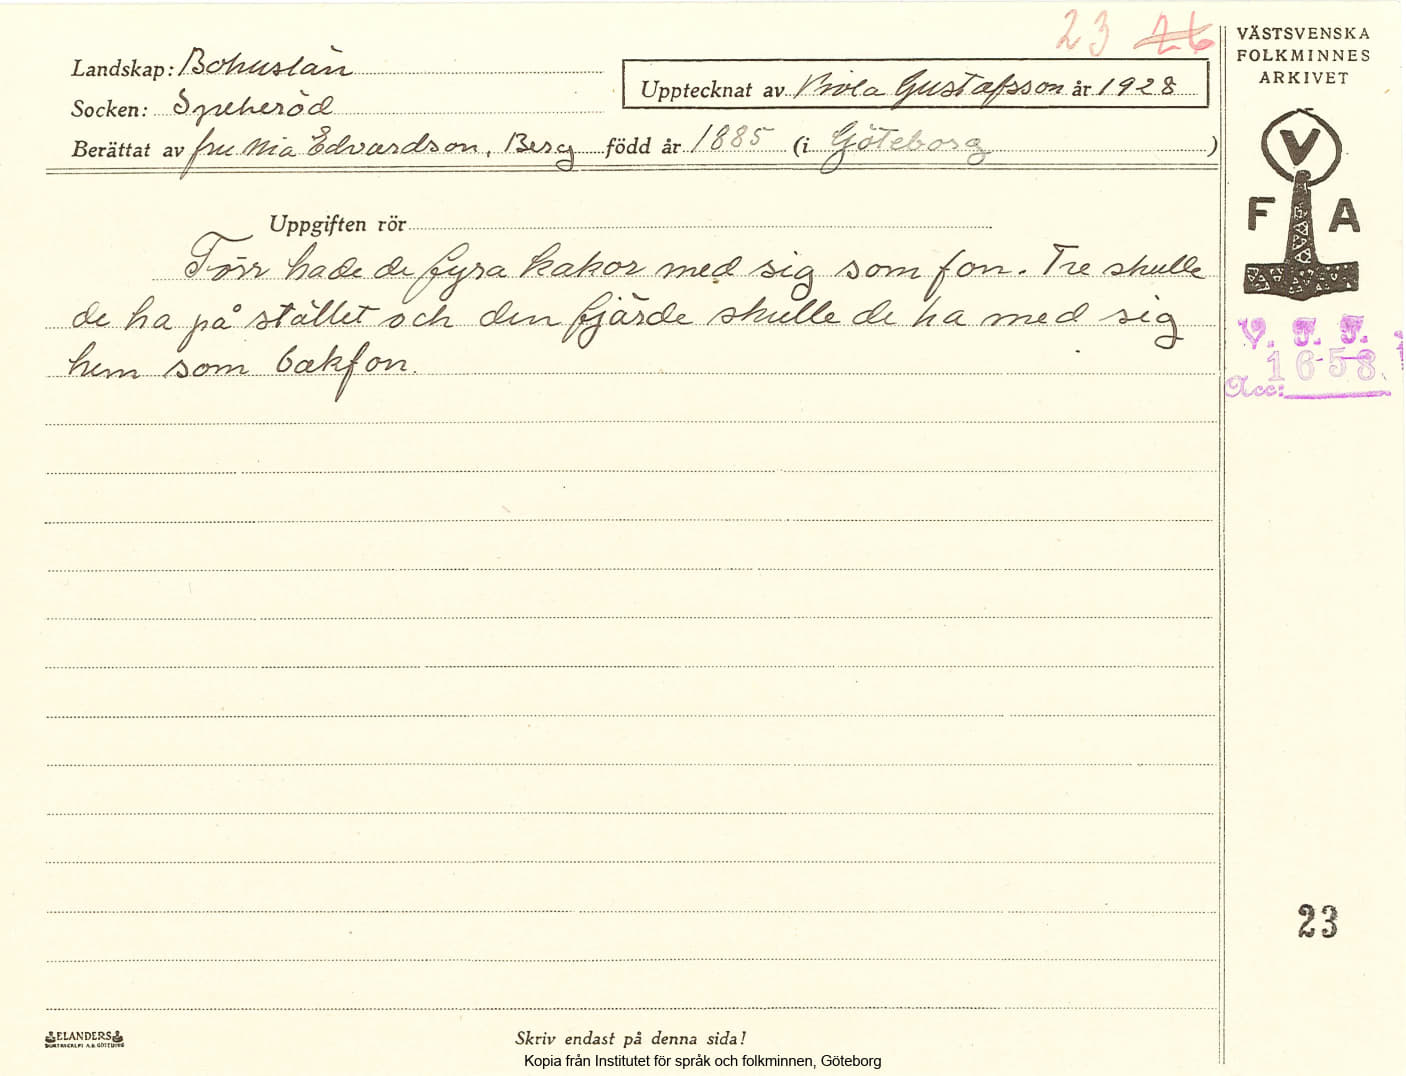 23 26
VÄSTSVENSKA
FOLKMINNES
ARKIVET
Landskap: Bohuslän
Upptecknat av Viola Gustafsson år 1928
Socken: Spekeröd
Berättat av fru Mia Edvardson, Berg född år 1885 (i Göteborg )
V
F A
Uppgiften rör
Förr hade de fyra kakor med sig som fon. Tre skulle
de ha på stället och den fjärde skulle de ha med sig
hem som bakfon.
V. F. F.
1658
Acc:
23
ELANDERS
Skriv endast på denna sida!
Kopia från Institutet för språk och folkminnen, Göteborg